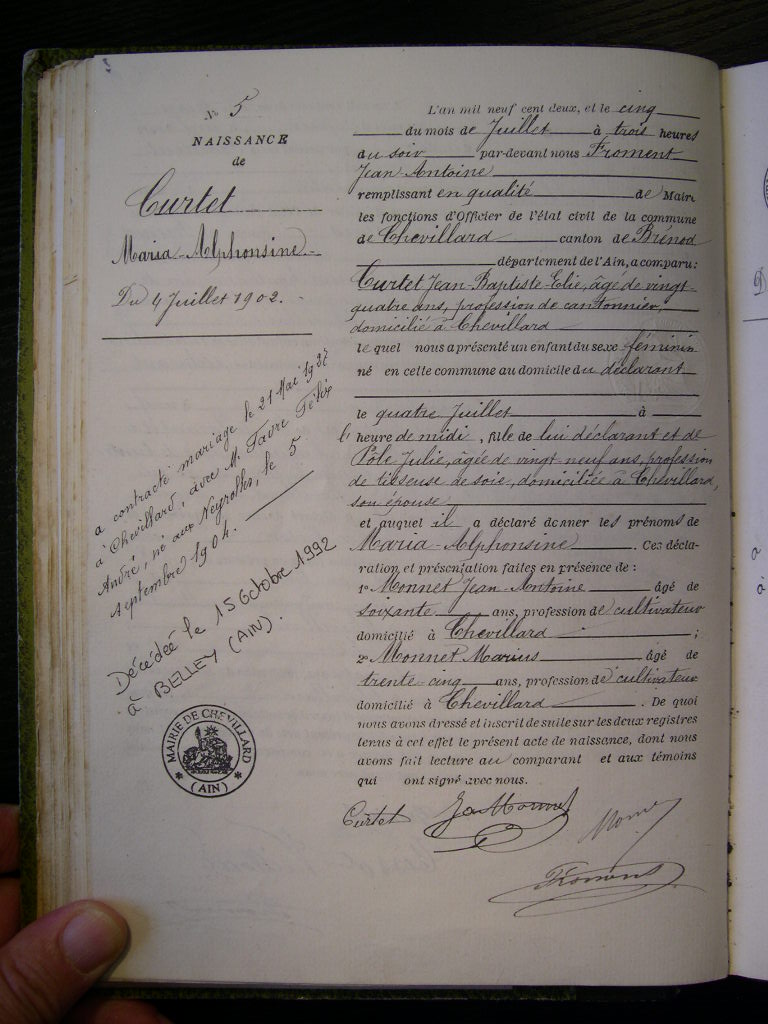 N° 5
NAISSANCE
de
Curtet
Maria-Alphonsine
Du 4 Juillet 1902.
a contracté mariage le 21 Mai 1927
à Chevillard, avec M. Favre Félix
André, né aux Neyrolles, le 5
septembre 1904.
Décédée le 15 Octobre 1992
à BELLEY (AIN).
MAIRIE DE CHEVILLARD
(AIN)
L'an mil neuf cent deux, et le cinq
du mois de Juillet à trois heures
du soir par-devant nous Froment
Jean-Antoine
remplissant en qualité de Maire
les fonctions d'Officier de l'état civil de la commune
de Chevillard canton de Brénod
département de l'Ain, a comparu:
Curtet Jean-Baptiste-Elie, âgé de vingt-
quatre ans, profession de cantonnier,
domicilié à Chevillard
le quel nous a présenté un enfant du sexe féminin
né en cette commune au domicile du déclarant
le quatre Juillet à
l'heure de midi, fille de lui déclarant et de
Pole Julie, âgée de vingt-neuf ans, profession
de tisseuse de soie, domiciliée à Chevillard,
son épouse
et auquel il a déclaré donner les prénoms de
Maria-Alphonsine. Ces décla-
ration et présentation faites en présence de :
1° Monnet Jean-Antoine âgé de
soixante ans, profession de cultivateur
domicilié à Chevillard ;
2° Monnet Marius âgé de
trente-cinq ans, profession de cultivateur
domicilié à Chevillard. De quoi
nous avons dressé et inscrit de suite sur les deux registres
tenus à cet effet le présent acte de naissance, dont nous
avons fait lecture au comparant et aux témoins
qui ont signé avec nous.
Curtet JaMonnet
Froment